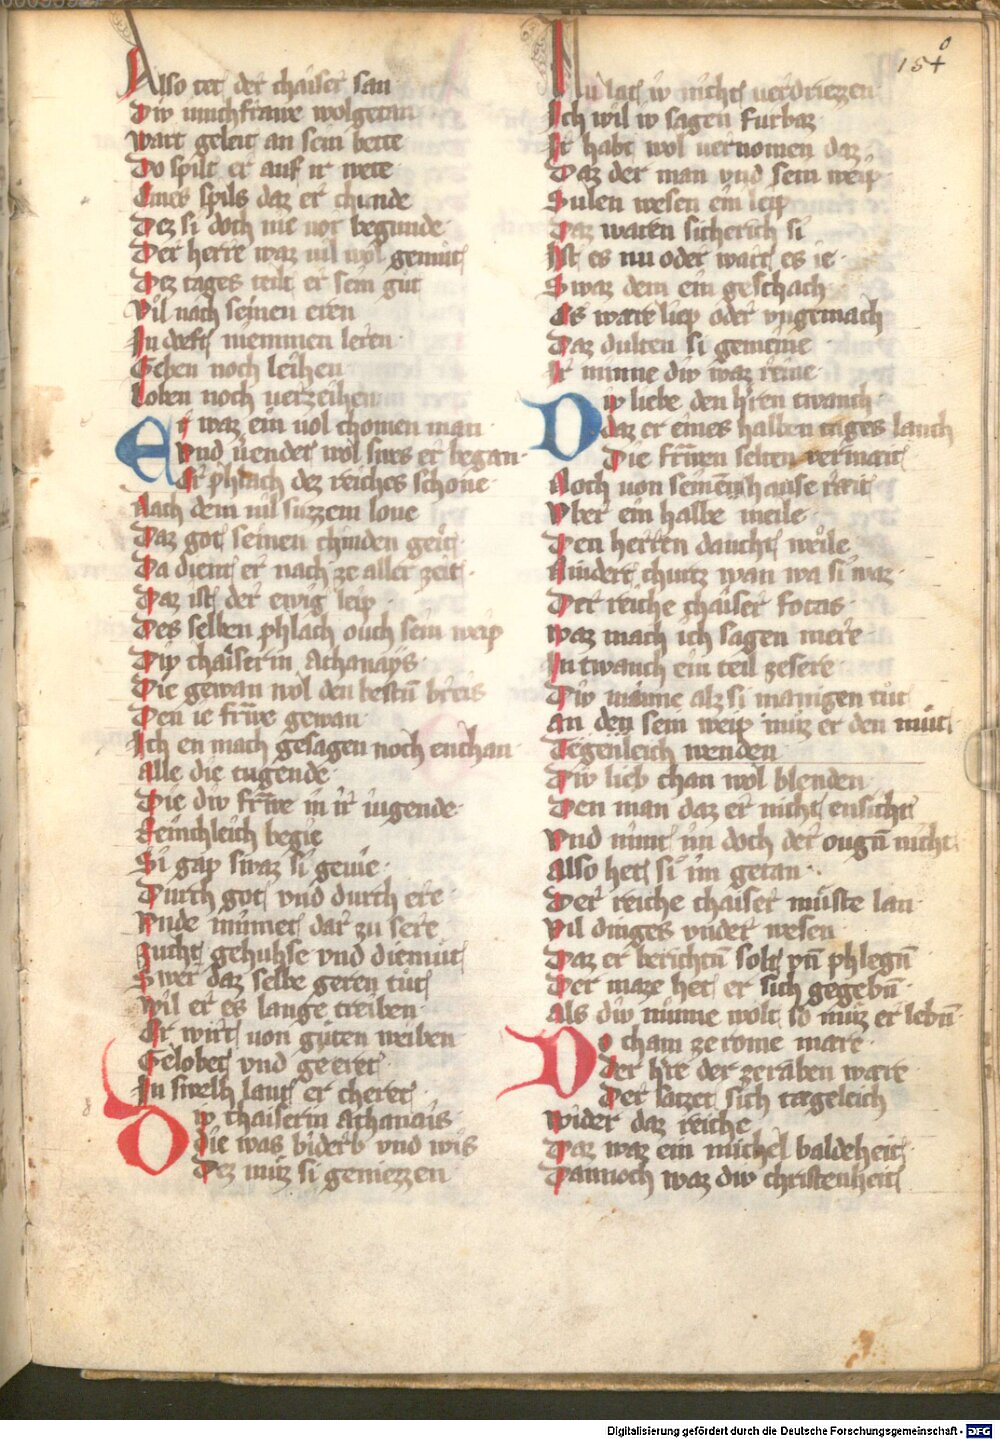 154
Also tet der chaiser san
Div iunchfrawe wolgetan
wart geleit an sein bette
Do spilt er auf ir wete
Eines spils daz er chunde
Dez si doch nie vor begunde
Der herre waz vil wol gemut
Dez tages teilt er sein gut
Vil nach seinen eren
In dorft niemmen leren
Geben noch leihen
Loben noch verzeihen
Er waz ein vol chomen man
Vnd uendet wol swes er began
Er phlach dez reiches schone
Nach dem vil suzzem lone
Daz got seinen chinden geit
Da dient er nach ze aller zeit
Daz ist der ewig leip
Des selben phlach ouch sein weip
Div chaiserin Athanays
Die gewan wol den bestn breis
Den ie frawe gewan
Ich en mach gesagen noch enchan
alle die tugende
Die div frawe in ir iugende
Reinchleich begie
Si gap swaz si gevie
Durch got vnd durch ere
Vnde minnet dar zu sere
zucht gehuhse vnd diemut
Swer daz selbe geren tut
Wil er es lange treiben
Er wirt von guten weiben
Gelobet vnd geeret
In swelh lant er cheret
Div chaiserin Athanais
Die was biderb vnd wis
Dez muz si geniezzen
Nu lat iv nicht verdriezzen
Ich wil iv sagen furbaz
Ir habt wol vernomen daz
Daz der man vnd sein weip
Sulen wesen ein leip
Daz waren sicherlich si
Ist es nu oder wart es ie
Swaz dem ein geschach
Es ware liep oder vngemach
Daz dulten si gemeine
Ir minne div waz reine
Div liebe den hren twanch
daz er eines halben tages lanch
Die frawen selten vermait
Noch von seinem hause rait
Vber ein halbe meile
Den herren daucht weile
Nindert churtz wan wa si waz
Der reiche chaiser focas
waz mach ich sagen mere
In twanch ein teil zesere
Div minne alz si manigen tut
an den sein weip muz er den mut
Tegenleich wenden
Div lieb chan wol blenden
Den man daz er nicht ensicht
Vnd nimt im doch der ougn nicht
Also het si im getan
Der reiche chaiser muste lan
Vil dinges vnder wesen
Daz er berichtn solt vn phlegn
Der maze het er sich gegebn
Als div minne wolt so muz er lebn
Do cham ze rome mare
der hre der zeraben ware
Der satzet sich tægeleich
Wider daz reiche
Daz waz ein michel baldeheit
Dannoch waz div christenheit
Digitalisierung gefördert durch die Deutsche Forschungsgemeinschaft - DFG